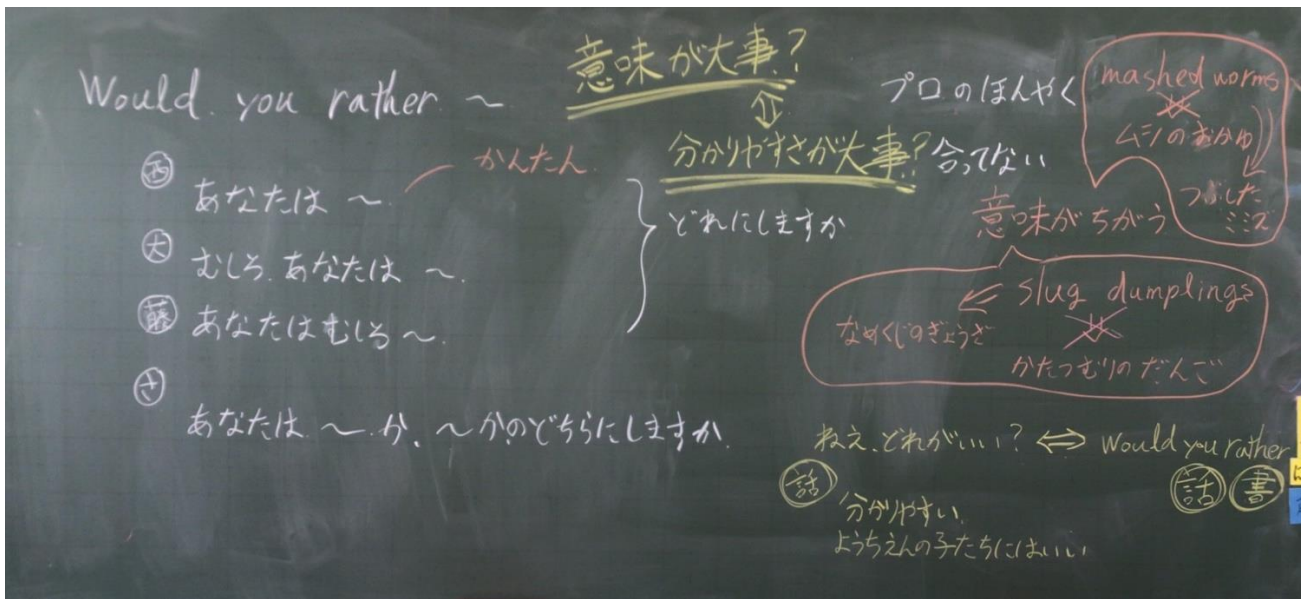 Would you rather ~
西
あなたは ~
かんたん
大
むしろ、あなたは ~
藤
あなたはむしろ ~
さ
あなたは ~ か、~ かのどちらにしますか
どれにしますか
意味が大事?
⇕
分かりやすさが大事?
プロのほんやく
合ってない
意味がちがう
mashed worms
ムシのおかゆ
つぶした
ミミズ
slug dumplings
なめくじのぎょうざ
かたつむりのだんご
ねえ、どれがいい? ⇔ Would you rather
話
話 書
分かりやすい
ようちえんの子たちにはいい